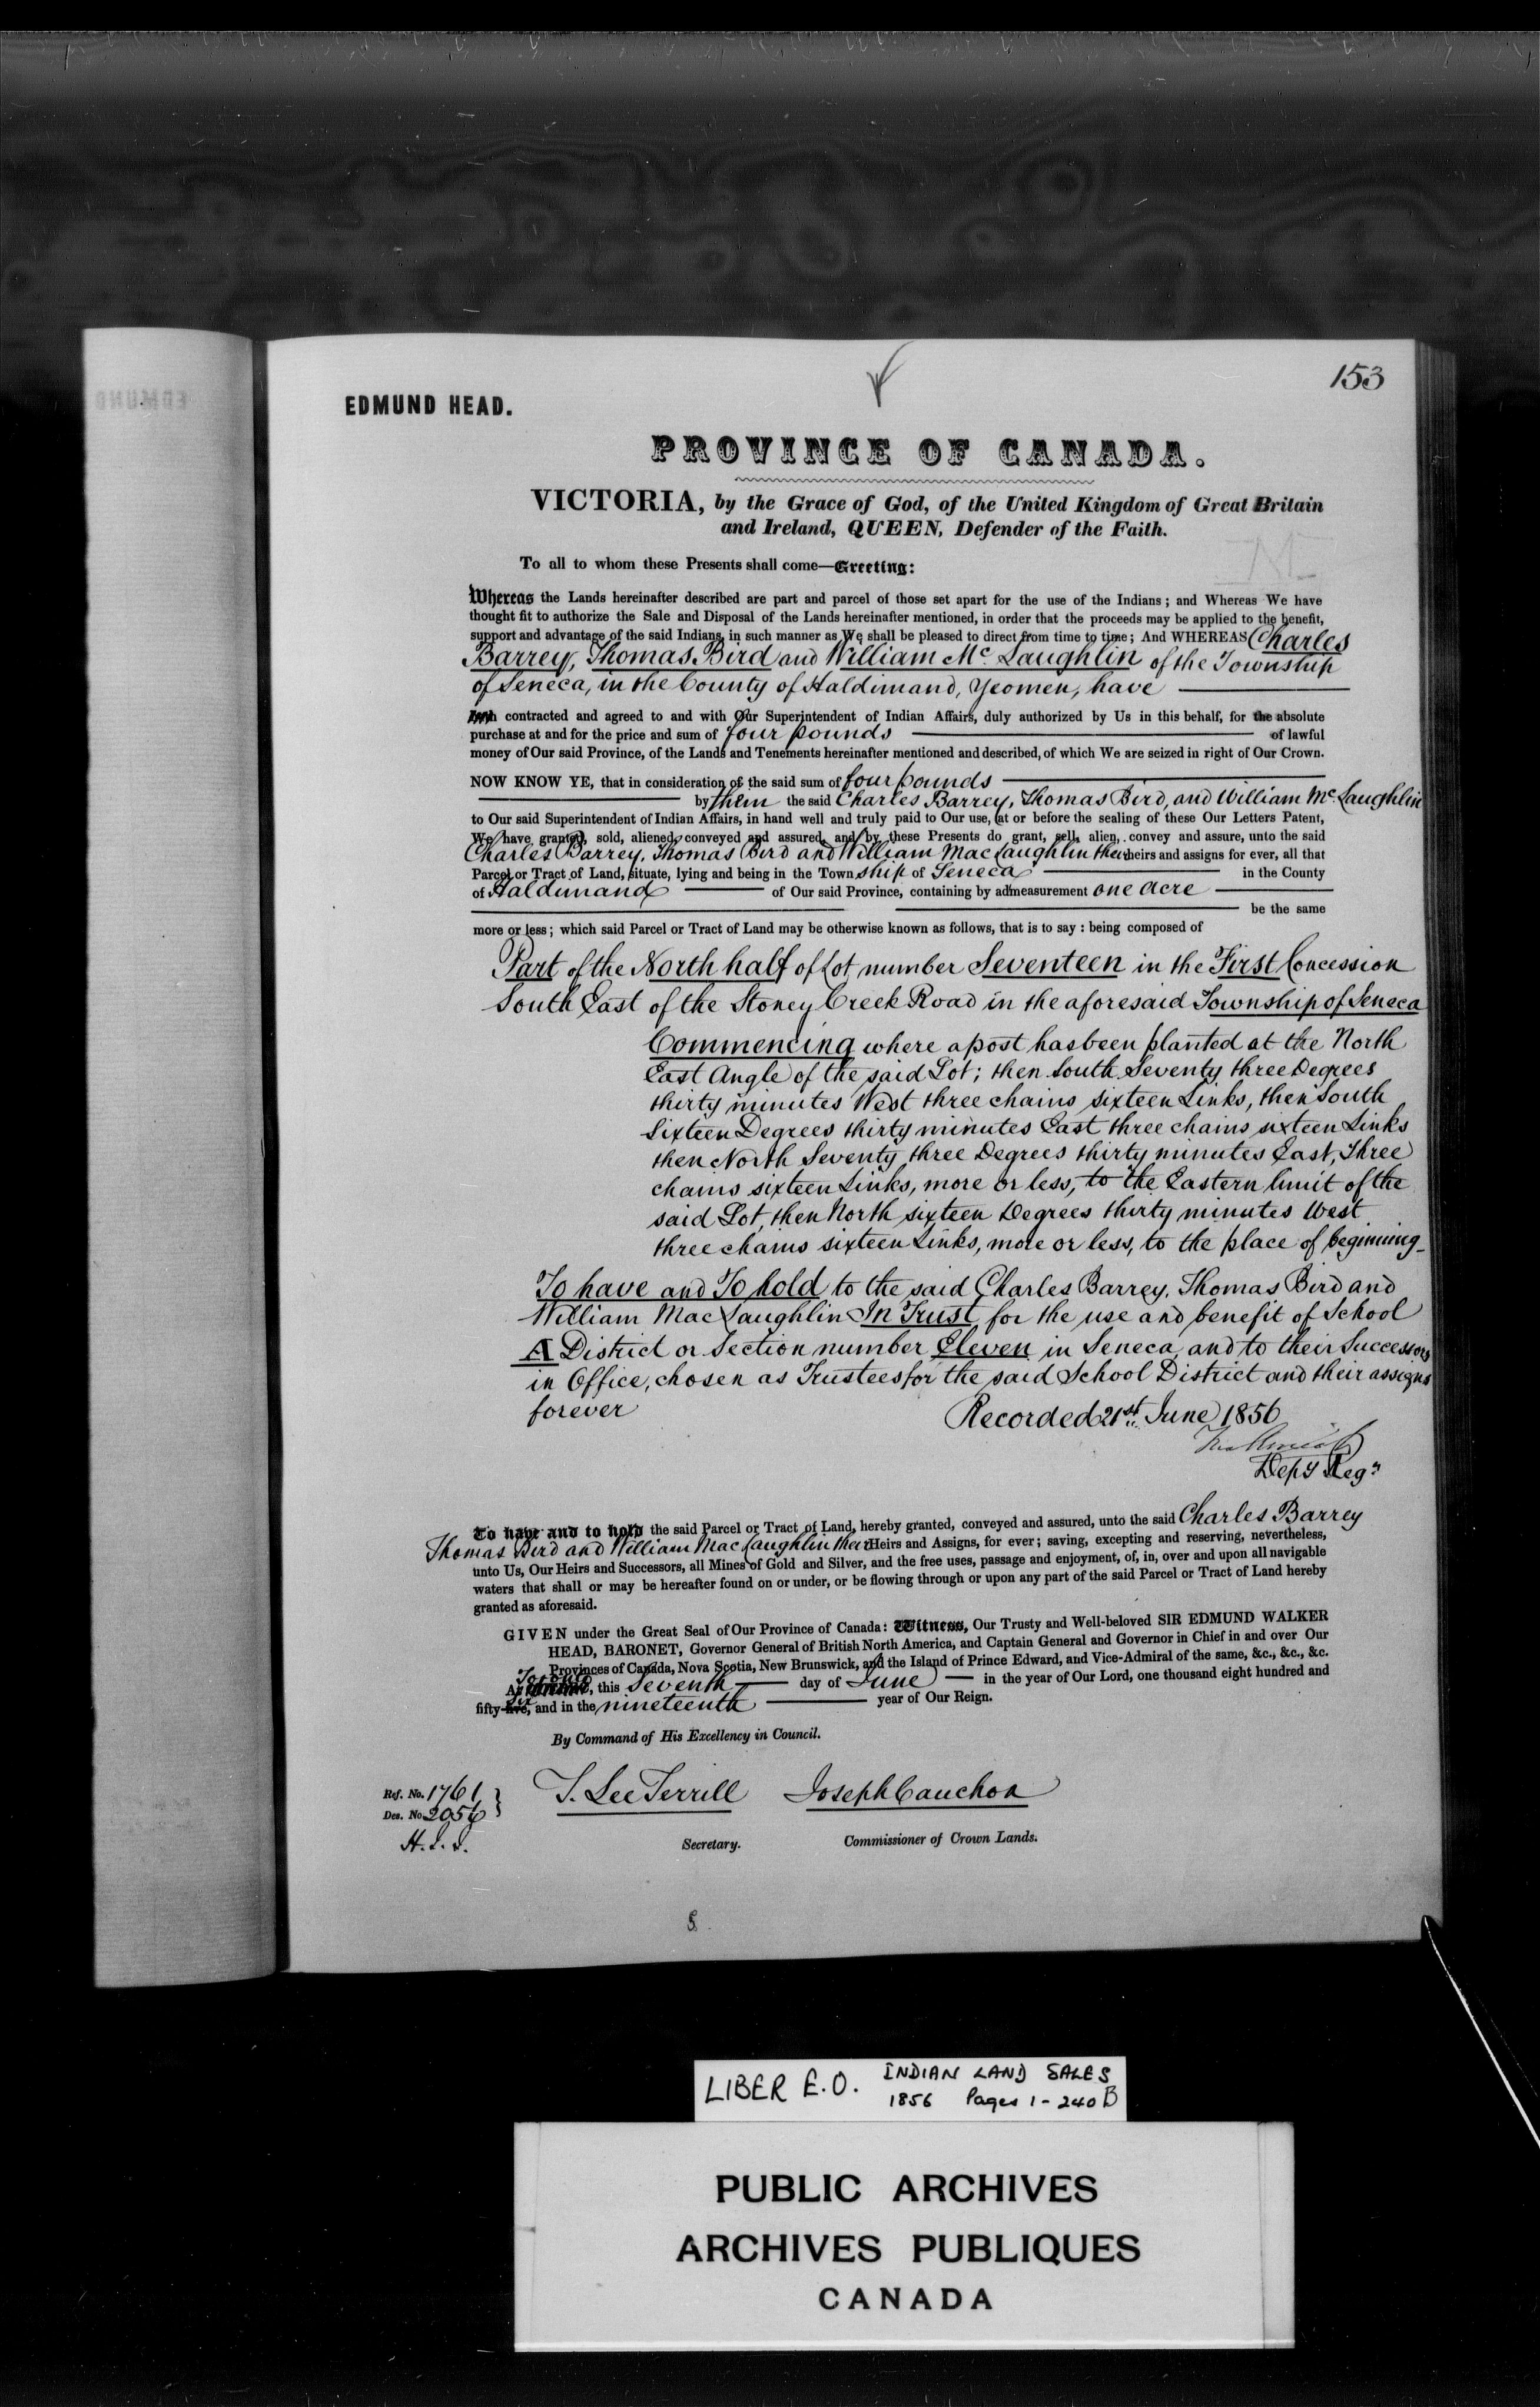 153
EDMUND HEAD.
PROVINCE OF CANADA.
VICTORIA, by the Grace of God, of the United Kingdom of Great Britain
and Ireland, QUEEN, Defender of the Faith.
To all to whom these Presents shall come—Greeting:
Whereas the Lands hereinafter described are part and parcel of those set apart for the use of the Indians; and Whereas We have
thought fit to authorize the Sale and Disposal of the Lands hereinafter mentioned, in order that the proceeds may be applied to the benefit,
support and advantage of the said Indians, in such manner as We shall be pleased to direct from time to time; And WHEREAS Charles
Barrey, Thomas Bird and William Mc Laughlin of the Township
of Seneca, in the County of Haldimand, Yeomen, have
contracted and agreed to and with Our Superintendent of Indian Affairs, duly authorized by Us in this behalf, for the absolute
purchase at and for the price and sum of four pounds of lawful
money of Our said Province, of the Lands and Tenements hereinafter mentioned and described, of which We are seized in right of Our Crown.
NOW KNOW YE, that in consideration of the said sum of four pounds
by them the said Charles Barrey, Thomas Bird, and William Mc Laughlin
to Our said Superintendent of Indian Affairs, in hand well and truly paid to Our use, at or before the sealing of these Our Letters Patent,
We have granted, sold, aliened, conveyed and assured, and by these Presents do grant, sell, alien, convey and assure, unto the said
Charles Barrey, Thomas Bird and William Mac Laughlin their heirs and assigns for ever, all that
Parcel or Tract of Land, situate, lying and being in the Town ship of Seneca in the County
of Haldimand of Our said Province, containing by admeasurement one acre
be the same
more or less; which said Parcel or Tract of Land may be otherwise known as follows, that is to say: being composed of
Part of the North half of Lot number Seventeen in the First Concession
South East of the Stoney Creek Road in the aforesaid Township of Seneca
Commencing where a post has been planted at the North
East Angle of the said Lot; then South Seventy three Degrees
thirty minutes West three chains sixteen Links, then South
Sixteen Degrees thirty minutes East three chains sixteen Links
then North Seventy three Degrees thirty minutes East, Three
chains sixteen Links, more or less, to the Eastern limit of the
said Lot, then North sixteen Degrees thirty minutes West
three chains sixteen Links, more or less, to the place of beginning_
To have and To hold to the said Charles Barrey, Thomas Bird and
William Mac Laughlin In Trust for the use and benefit of School
A District or Section number Eleven in Seneca, and to their Successors
in Office, chosen as Trustees for the said School District and their assigns
forever
Recorded 21st June 1856
Depy Regr
To have and to hold the said Parcel or Tract of Land, hereby granted, conveyed and assured, unto the said Charles Barrey
Thomas Bird and William Mac Laughlin their Heirs and Assigns, for ever; saving, excepting and reserving, nevertheless,
unto Us, Our Heirs and Successors, all Mines of Gold and Silver, and the free uses, passage and enjoyment, of, in, over and upon all navigable
waters that shall or may be hereafter found on or under, or be flowing through or upon any part of the said Parcel or Tract of Land hereby
granted as aforesaid.
GIVEN under the Great Seal of Our Province of Canada: Witness, Our Trusty and Well-beloved SIR EDMUND WALKER
HEAD, BARONET, Governor General of British North America, and Captain General and Governor in Chief in and over Our
Provinces of Canada, Nova Scotia, New Brunswick, and the Island of Prince Edward, and Vice-Admiral of the same, &c., &c., &c.
At Toronto, this Seventh day of June in the year of Our Lord, one thousand eight hundred and
fifty-five, six and in the nineteenth year of Our Reign.
By Command of His Excellency in Council.
Ref. No. 1761
Des. No. 2056
H. I. S.
T. Lee Terrill Joseph Cauchon
Secretary. Commissioner of Crown Lands.
LIBER E.O. INDIAN LAND SALES
1856 Pages 1-240B
PUBLIC ARCHIVES
ARCHIVES PUBLIQUES
CANADA